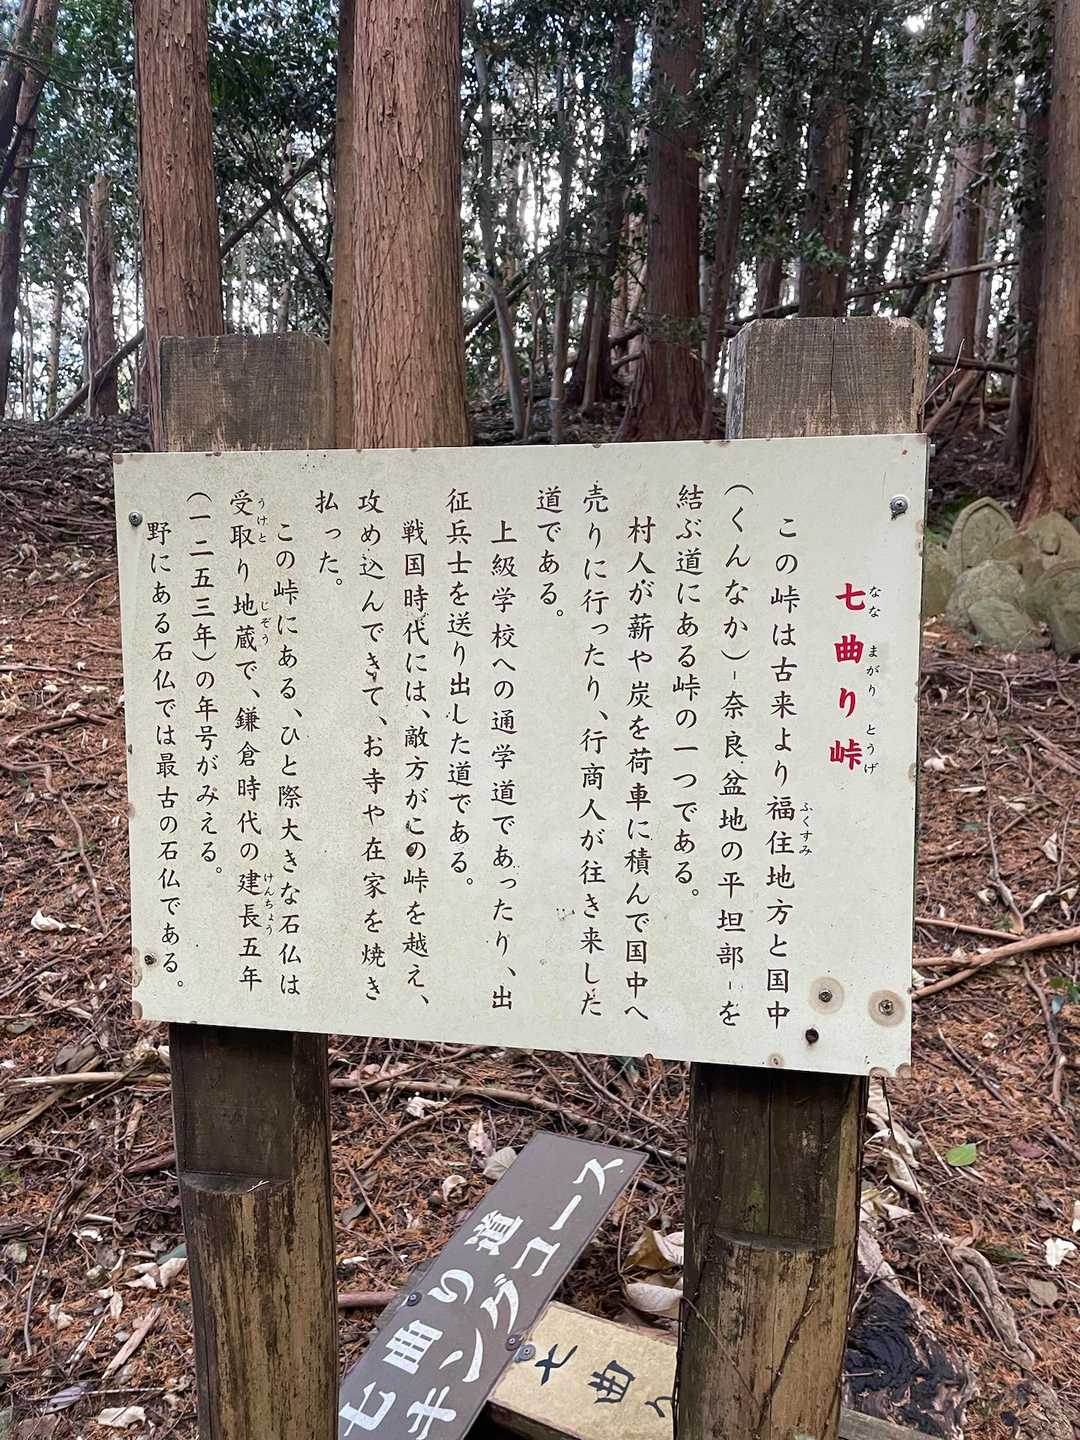 七曲り峠
なな まがり とうげ
この峠は古来より福住地方と国中
ふくすみ
(くんなか)-奈良盆地の平坦部-を
結ぶ道にある峠の一つである。
村人が薪や炭を荷車に積んで国中へ
売りに行ったり、行商人が往き来した
道である。
上級学校への通学道であったり、出
征兵士を送り出した道である。
戦国時代には、敵方がこの峠を越え、
攻め込んできて、お寺や在家を焼き
払った。
この峠にある、ひと際大きな石仏は
受取り地蔵で、鎌倉時代の建長五年
うけと じぞう けんちょう
(一二五三年)の年号がみえる。
野にある石仏では最古の石仏である。
七曲り道
キングコース
七曲り